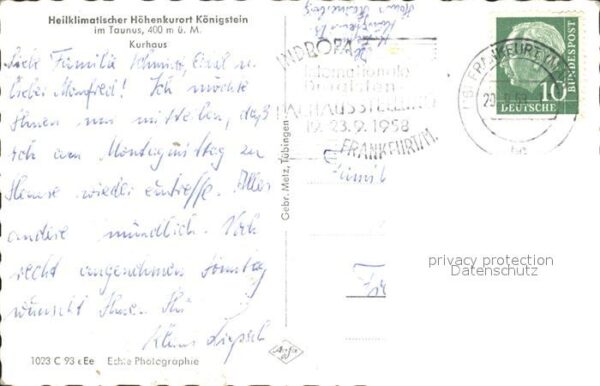 Heilklimatischer Höhenkurort Königstein
im Taunus, 400 m ü. M.
Kurhaus
Liebe Familie Schmidt,
lieber Manfred! Ich möchte
Ihnen nur mitteilen, daß
ich am Montagmittag zu
Hause wieder eintreffe. Alles
andere mündlich. Noch
recht angenehmen Sonntag
wünscht Ihnen Ihr
Klaus
1023 C 93 Ee Echte Photographie
Gebr. Metz, Tübingen
INDROPA
Internationale
FACHAUSSTELLUNG
12.-23.9.1958
FRANKFURT/M.
FRANKFURT (M)
10
DEUTSCHE
BUNDESPOST
Famil
privacy protection
Datenschutz
Agfa